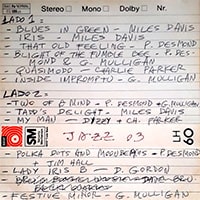 LADO 1 = Stereo Mono Dolby Nr.
- BLUES IN GREEN - MILES DAVIS
- IRIS - MILES DAVIS
- THAT OLD FEELING - P. DESMOND
- BLIGHT OF THE FUMBLE BEE - P. DES-
MOND & G. MULLIGAN
- QUASIMODO - CHARLIE PARKER
- INSIDE IMPROMPTU - G. MULLIGAN
LADO 2 =
- TWO OF A MIND - P. DESMOND - G. MULLIGAN
- TADD'S DELIGHT - MILES DAVIS
- MY MAN DIZZY - CH. PARKER
BASF JAZZ 03 60
- POLKA DOTS AND MOONBEAMS - P. DESMOND
+ JIM HALL
- LADY IRIS B - D. GORDON
- FESTIVE MINOR - G. MULLIGAN